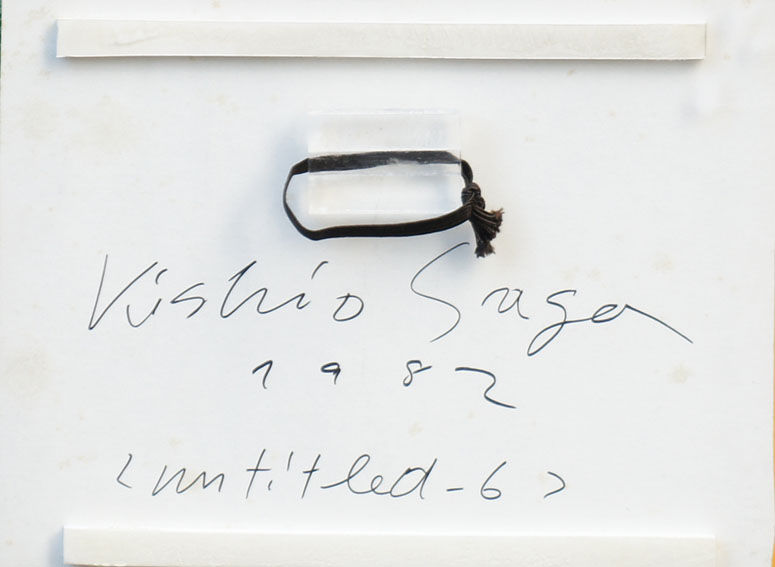 Kishio Suga
1982
<untitled-6>